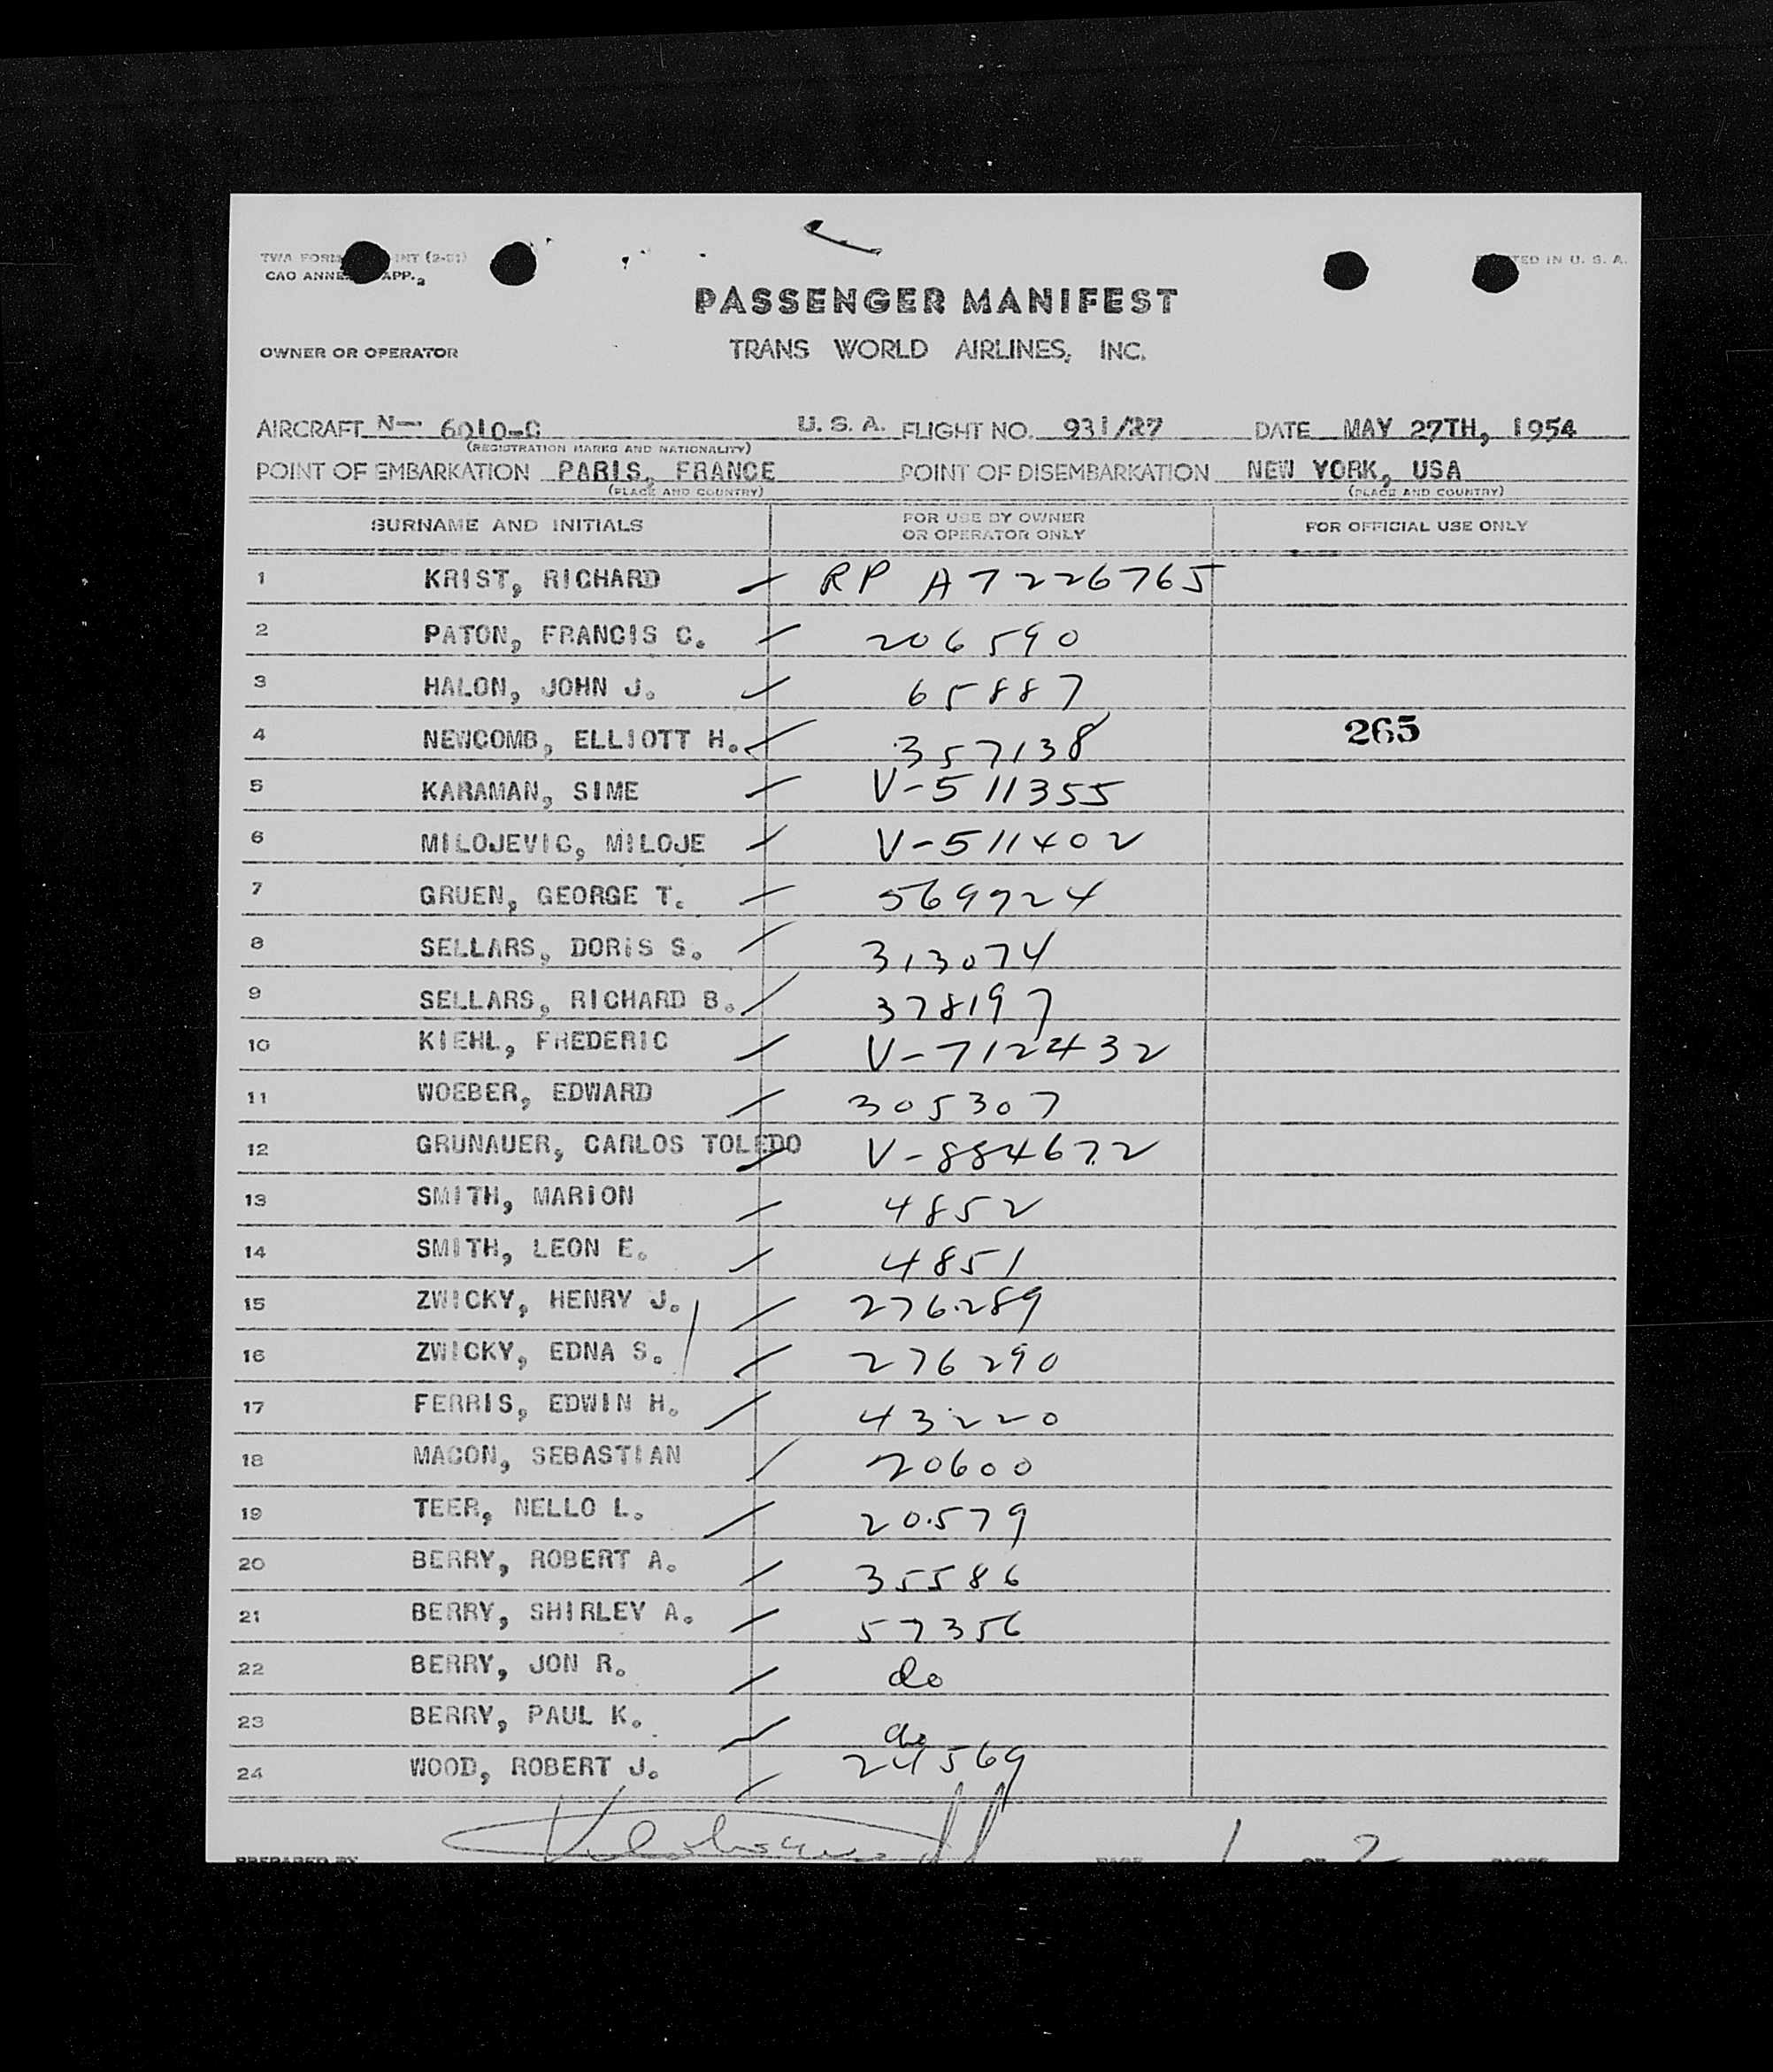 TWA FORM INT (2-51)
CAO ANNE APP. 2
TED IN U. S. A.
PASSENGER MANIFEST
OWNER OR OPERATOR TRANS WORLD AIRLINES, INC.
AIRCRAFT N— 6010-C U. S. A. FLIGHT NO. 931/27 DATE MAY 27TH, 1954
(REGISTRATION MARKS AND NATIONALITY)
POINT OF EMBARKATION PARIS, FRANCE POINT OF DISEMBARKATION NEW YORK, USA
(PLACE AND COUNTRY) (PLACE AND COUNTRY)
SURNAME AND INITIALS FOR USE BY OWNER OR OPERATOR ONLY FOR OFFICIAL USE ONLY
1 KRIST, RICHARD RP A7226765
2 PATON, FRANCIS C. 206590
3 HALON, JOHN J. 65887
4 NEWCOMB, ELLIOTT H. 357138 265
5 KARAMAN, SIME V-511355
6 MILOJEVIC, MILOJE V-511402
7 GRUEN, GEORGE T. 569724
8 SELLARS, DORIS S. 313074
9 SELLARS, RICHARD B. 378197
10 KIEHL, FREDERIC V-712432
11 WOEBER, EDWARD 305307
12 GRUNAUER, CARLOS TOLEDO V-884672
13 SMITH, MARION 4852
14 SMITH, LEON E. 4851
15 ZWICKY, HENRY J. 276289
16 ZWICKY, EDNA S. 276290
17 FERRIS, EDWIN H. 43220
18 MACON, SEBASTIAN 20600
19 TEER, NELLO L. 20579
20 BERRY, ROBERT A. 35586
21 BERRY, SHIRLEY A. 57356
22 BERRY, JON R. do
23 BERRY, PAUL K. do
24 WOOD, ROBERT J. 24569
PREPARED BY PAGE 1 OF 2 PAGES